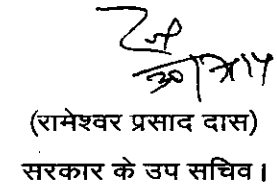 (रामेश्वर प्रसाद दास)
सरकार के उप सचिव।